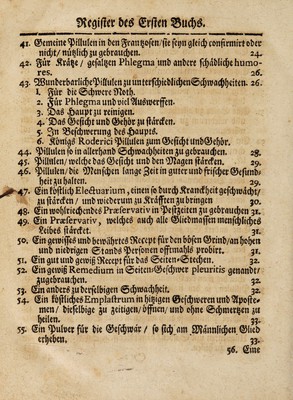 Register des Ersten Buchs.
41. Gemeine Pillulen in den Frantzosen/ sie seyn gleich confirmiet oder
nicht/ nützlich zu gebrauchen. 24.
42. Für Krätze/ gesaltzen Phlegma und andere schädliche humo-
res. 26.
43. Wunderbarliche Pillulen zu unterschiedlichen Schwachheiten. 26.
1. Für die Schwere Noth.
2. Für Phlegma und viel Auswerffen.
3. Das Haupt zu reinigen.
4. Das Gesicht und Gehör zu stärcken.
5. In Beschwerung des Haupts.
6. Königs Roderici Pillulen zum Gesicht und Gehör.
44. Pillulen so in allerhand Schwachheiten zu gebrauchen. 28.
45. Pillulen/ welche das Gesicht und den Magen stärcken. 29.
46. Pillulen/ die Menschen lange Zeit in guter und frischer Gesund-
heit zu halten. 29.
47. Ein köstlich Electuarium, einen so durch Kranckheit geschwächt/
zu stärcken/ und wiederum zu Kräfften zu bringen 30
48. Ein wohlriechendes Præservativ in Pestzeiten zu gebrauchen 31.
49. Ein Præservativ, welches auch alle Gliedmassen menschliches
Leibes stärcket. 31.
50. Ein gewisses und bewährtes Recept für den bösen Grind/ an hohen
und niedrigen Stands Personen offtmahls probirt. 31.
51. Ein gut und gewiß Recept für das Seiten-Stechen. 32.
52. Ein gewiß Remedium in Seiten-Geschwer pleuritis genandt/
zugebrauchen. 32.
53. Ein anders zu derselbigen Schwachheit. 32.
54. Ein köstliches Emplastrum in hitzigen Geschweren und Aposte-
men/ dieselbige zu zeitigen/ öffnen/ und ohne Schmertzen zu
heilen. 33.
55. Ein Pulver für die Geschwär/ so sich am Männlichen Glied
erheben. 33.
56. Eine